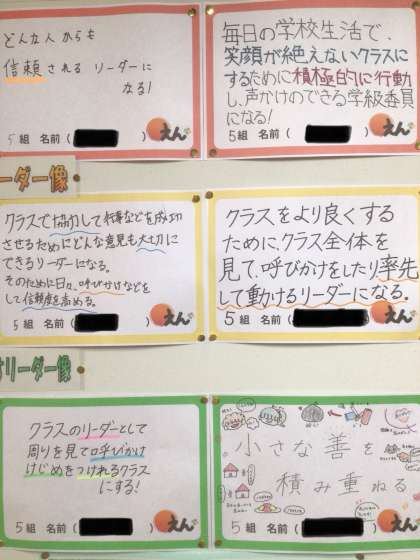 どんな人からも
信頼されるリーダーに
なる!
5組 名前( )
えん
毎日の学校生活で、
笑顔が絶えないクラスに
するために積極的に行動
し、声かけのできる学級委員
になる!
5組 名前( )
えん
ーダー像
クラスで協力して行事などを成功
させるためにどんな意見も大切に
できるリーダーになる。
そのために日々、呼びかけなどを
して信頼度を高める。
5組 名前( )
えん
クラスをより良くする
ために、クラス全体を
見て、呼びかけをしたり率先
して動けるリーダーになる.
5組 名前( )
えん
リーダー像
クラスのリーダーとして
周りを見て呼びかけ
けじめをつけれるクラス
にする!
5組 名前( )
えん
小さな善を
積み重ねる
5組 名前( )
えん